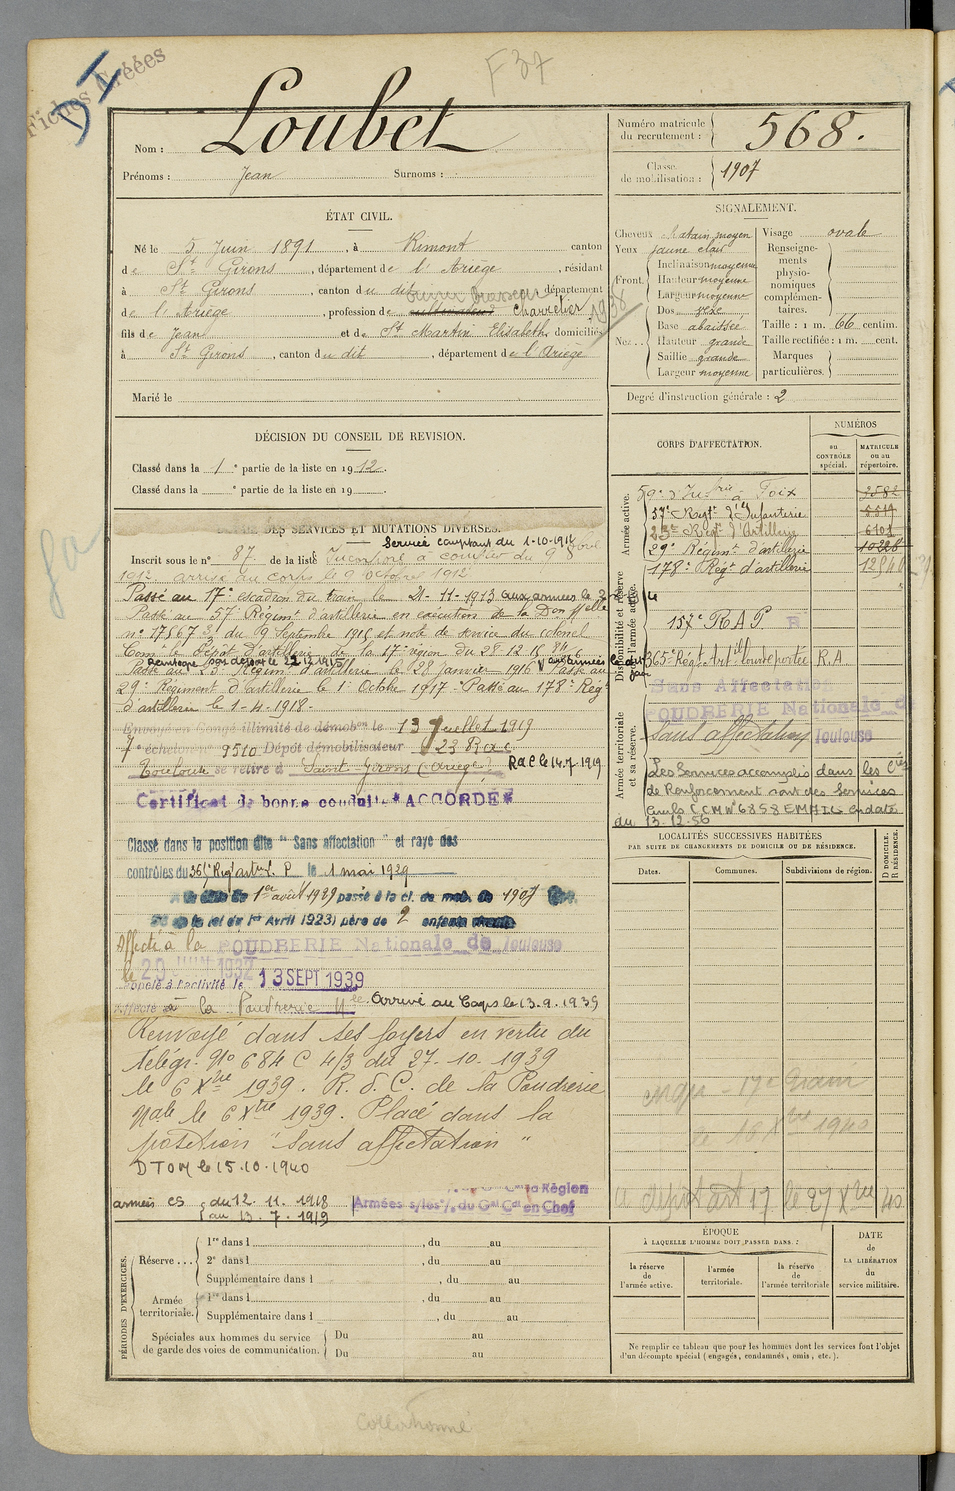 Fiches Créées
D I
F 37
Nom : Loubet
Prénoms : Jean Surnoms :
Numéro matricule du recrutement : 568.
Classe de mobilisation : 1907
ÉTAT CIVIL.
Né le 5 Juin 1891, à Rimont canton
de St Girons, département de l'Ariège, résidant
à St Girons, canton du dit département
de l'Ariège, profession de cultivateur Charretier 1938
fils de Jean et de St Martin Elisabeth domiciliés
à St Girons, canton du dit, département de l'Ariège
Marié le
SIGNALEMENT.
Cheveux chatain moyen Visage ovale
Yeux jaune clair
Front. Inclinaison moyenne
Hauteur moyenne
Largeur moyenne
Nez.. Dos
Base abaissée
Hauteur grande
Saillie grande
Largeur moyenne
Renseignements physionomiques complémentaires.
Taille : 1 m. 66 centim.
Taille rectifiée : 1 m. cent.
Marques particulières.
Degré d'instruction générale : 2
DÉCISION DU CONSEIL DE REVISION.
Classé dans la 1e partie de la liste en 1912.
Classé dans la e partie de la liste en 19
DES SERVICES ET MUTATIONS DIVERSES.
Service comptant du 1-10-1912
Inscrit sous le no 87 de la liste Incorporé à compter du 9 8bre
1912 arrivé au corps le 9 octobre 1912
Passé au 17e escadron du train le 21-11-1913 aux armées le
Passé au 57e Régimt d'artillerie en exécution de la Don Mlle
no 17567 3/ du 19 Septembre 1915 et note de service du colonel
Comt le Dépôt d'artillerie de la 17e région du 28.12.15
Remtogne pas départ le 22.12.1915
Passé au 23e Régimt d'artillerie le 28 Janvier 1916 aux armées le dit jour Passé au
29e Régiment d'artillerie le 1er Octobre 1917 - Passé au 178e Régt
d'artillerie le 1-4-1918.
Envoyé en Congé illimité de démobon le 13 Juillet 1919
7e échelon no 9510 Dépôt démobilisateur 23 RAC
Toulouse se retire à Saint Girons (Ariège) RdC le 14.7.1919
Certificat de bonne conduite "ACCORDÉ"
Classé dans la position dite "Sans affectation" et rayé des
contrôles du 365e Reg art L. P le 1 mai 1929
1er août 1929 passé à la cl. de mob. de 1907
la loi du 1er Avril 1923) père de 2 enfants
Affecté à la POUDRERIE Nationale de Toulouse
le 20 JUIN 1932
Rappelé à l'activité le 13 SEPT 1939
Affecté à la Poudrerie Nle Arrivé au Corps le 13.9.1939
Renvoyé dans ses foyers en vertu du
télégr. No 684 C 4/3 du 27.10.1939
le 6 Xbre 1939. R.d.C. de la Poudrerie
Nale le 6 Xbre 1939. Placé dans la
position "Sans affectation"
DTOM le 15.10.1940
armées es du 12.11.1918
au 13.7.1919
la Région
Armées du Gal Ct en Chef
CORPS D'AFFECTATION.
NUMÉROS
au CONTRÔLE spécial.
MATRICULE ou au répertoire.
Armée active.
59e d'Infrie à Foix 3582
57e Régt d'Infanterie 5519
23e Régt d'Artillery 6101
29e Régimt d'artillerie 10228
178e Régt d'artillerie
Disponibilité et réserve de l'armée active.
157e RAP.
365e Régt Artie lourde portée R.A
Sans Affectation
POUDRERIE Nationale de
Sans affectation Toulouse
Armée territoriale et sa réserve.
Les Services accomplis dans les Cies
de Renforcement sont des Services
Civils (CMNo 6858 EMA/1L en date
du 13.12.56
LOCALITÉS SUCCESSIVES HABITÉES
PAR SUITE DE CHANGEMENTS DE DOMICILE OU DE RÉSIDENCE.
Dates. Communes. Subdivisions de région. D DOMICILE. R RÉSIDENCE.
17e Train
le 16 Xbre 1940
dépôt art 17 le 27 Xbre 40
PÉRIODES D'EXERCICES.
Réserve ... 1re dans l , du au
2e dans l , du au
Supplémentaire dans l , du au
Armée territoriale. 1re dans l , du au
Supplémentaire dans l , du au
Spéciales aux hommes du service de garde des voies de communication. Du au
Du au
ÉPOQUE
À LAQUELLE L'HOMME DOIT PASSER DANS :
la réserve de l'armée active.
l'armée territoriale.
la réserve de l'armée territoriale
DATE de LA LIBÉRATION du service militaire.
Ne remplir ce tableau que pour les hommes dont les services font l'objet
d'un décompte spécial (engagés, condamnés, omis, etc.).
Collationné